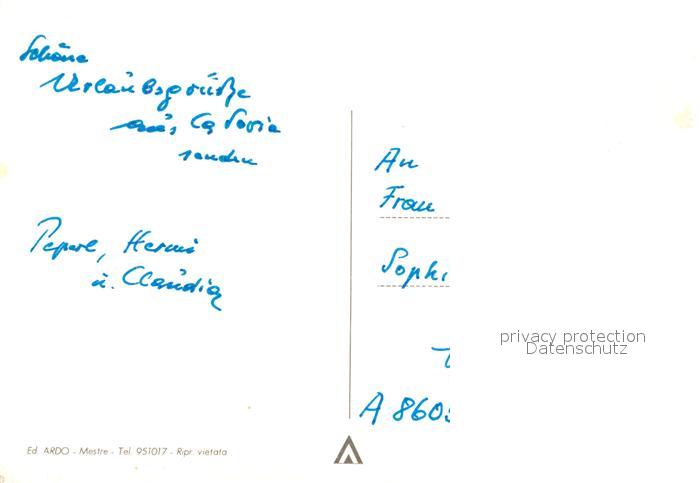 Schöne
Urlaubsgrüße
aus
senden
Peperl, Hermi
u. Claudia
An
Frau
Soph
A 860
privacy protection
Datenschutz
Ed. ARDO - Mestre - Tel. 951017 - Ripr. vietata